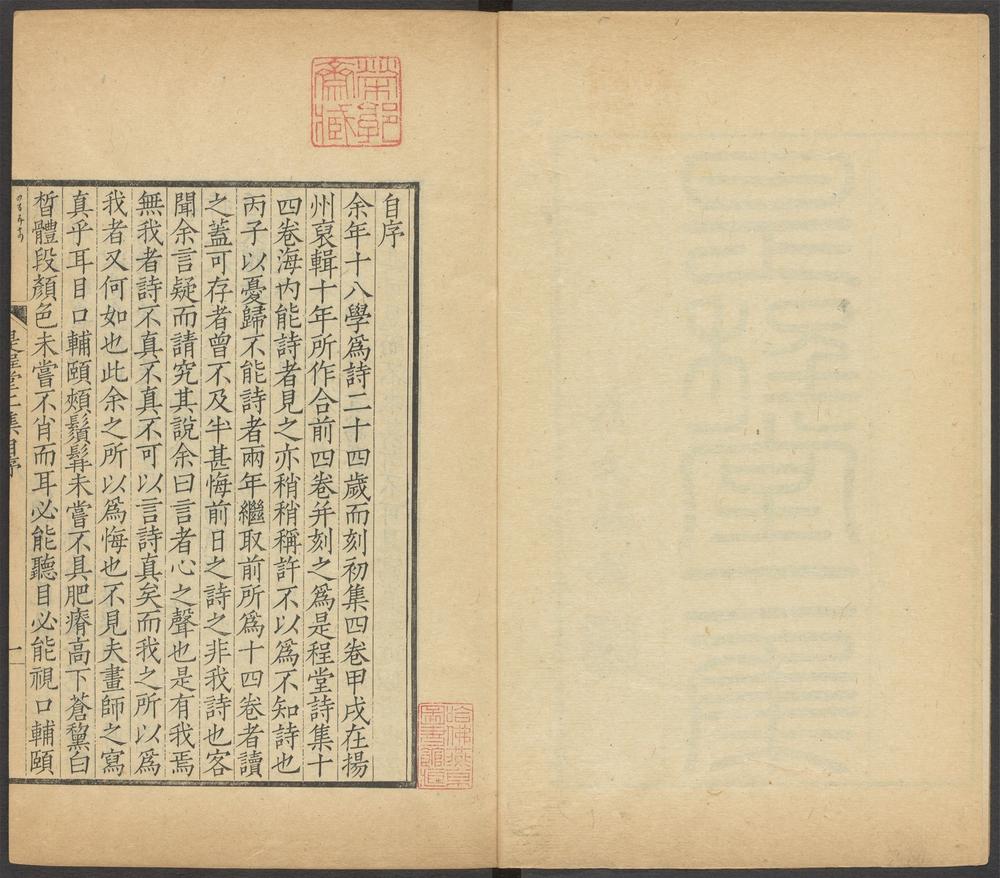 自序
余年十八學爲詩二十四歲而刻初集四卷甲戌在揚
州裒輯十年所作合前四卷并刻之爲是程堂詩集十
四卷海内能詩者見之亦稍稍稱許不以爲不知詩也
丙子以憂歸不能詩者兩年繼取前所爲十四卷者讀
之蓋可存者曾不及半甚悔前日之詩之非我詩也客
聞余言疑而請究其說余曰言者心之聲也是有我焉
無我者詩不真不真不可以言詩真矣而我之所以爲
我者又何如也此余之所以爲悔也不見夫畫師之寫
真乎耳目口輔頤頰鬚髯未嘗不具肥瘠高下蒼黧白
晳體段顏色未嘗不肖而耳必能聽目必能視口輔頤
是程堂二集自序
一
哈佛燕京
圖書館藏